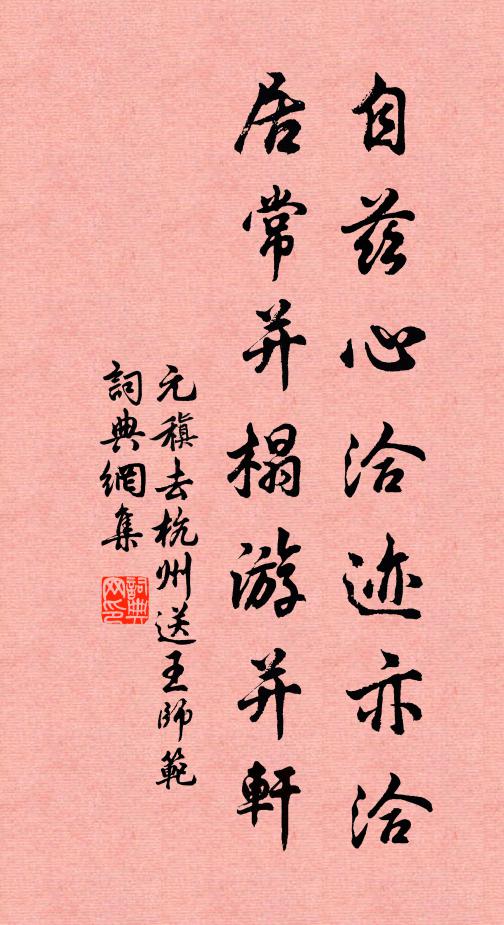 自茲心洽迹亦洽
居常并榻游并軒
元稹去杭州送王師範
詞典網集
詞典網印